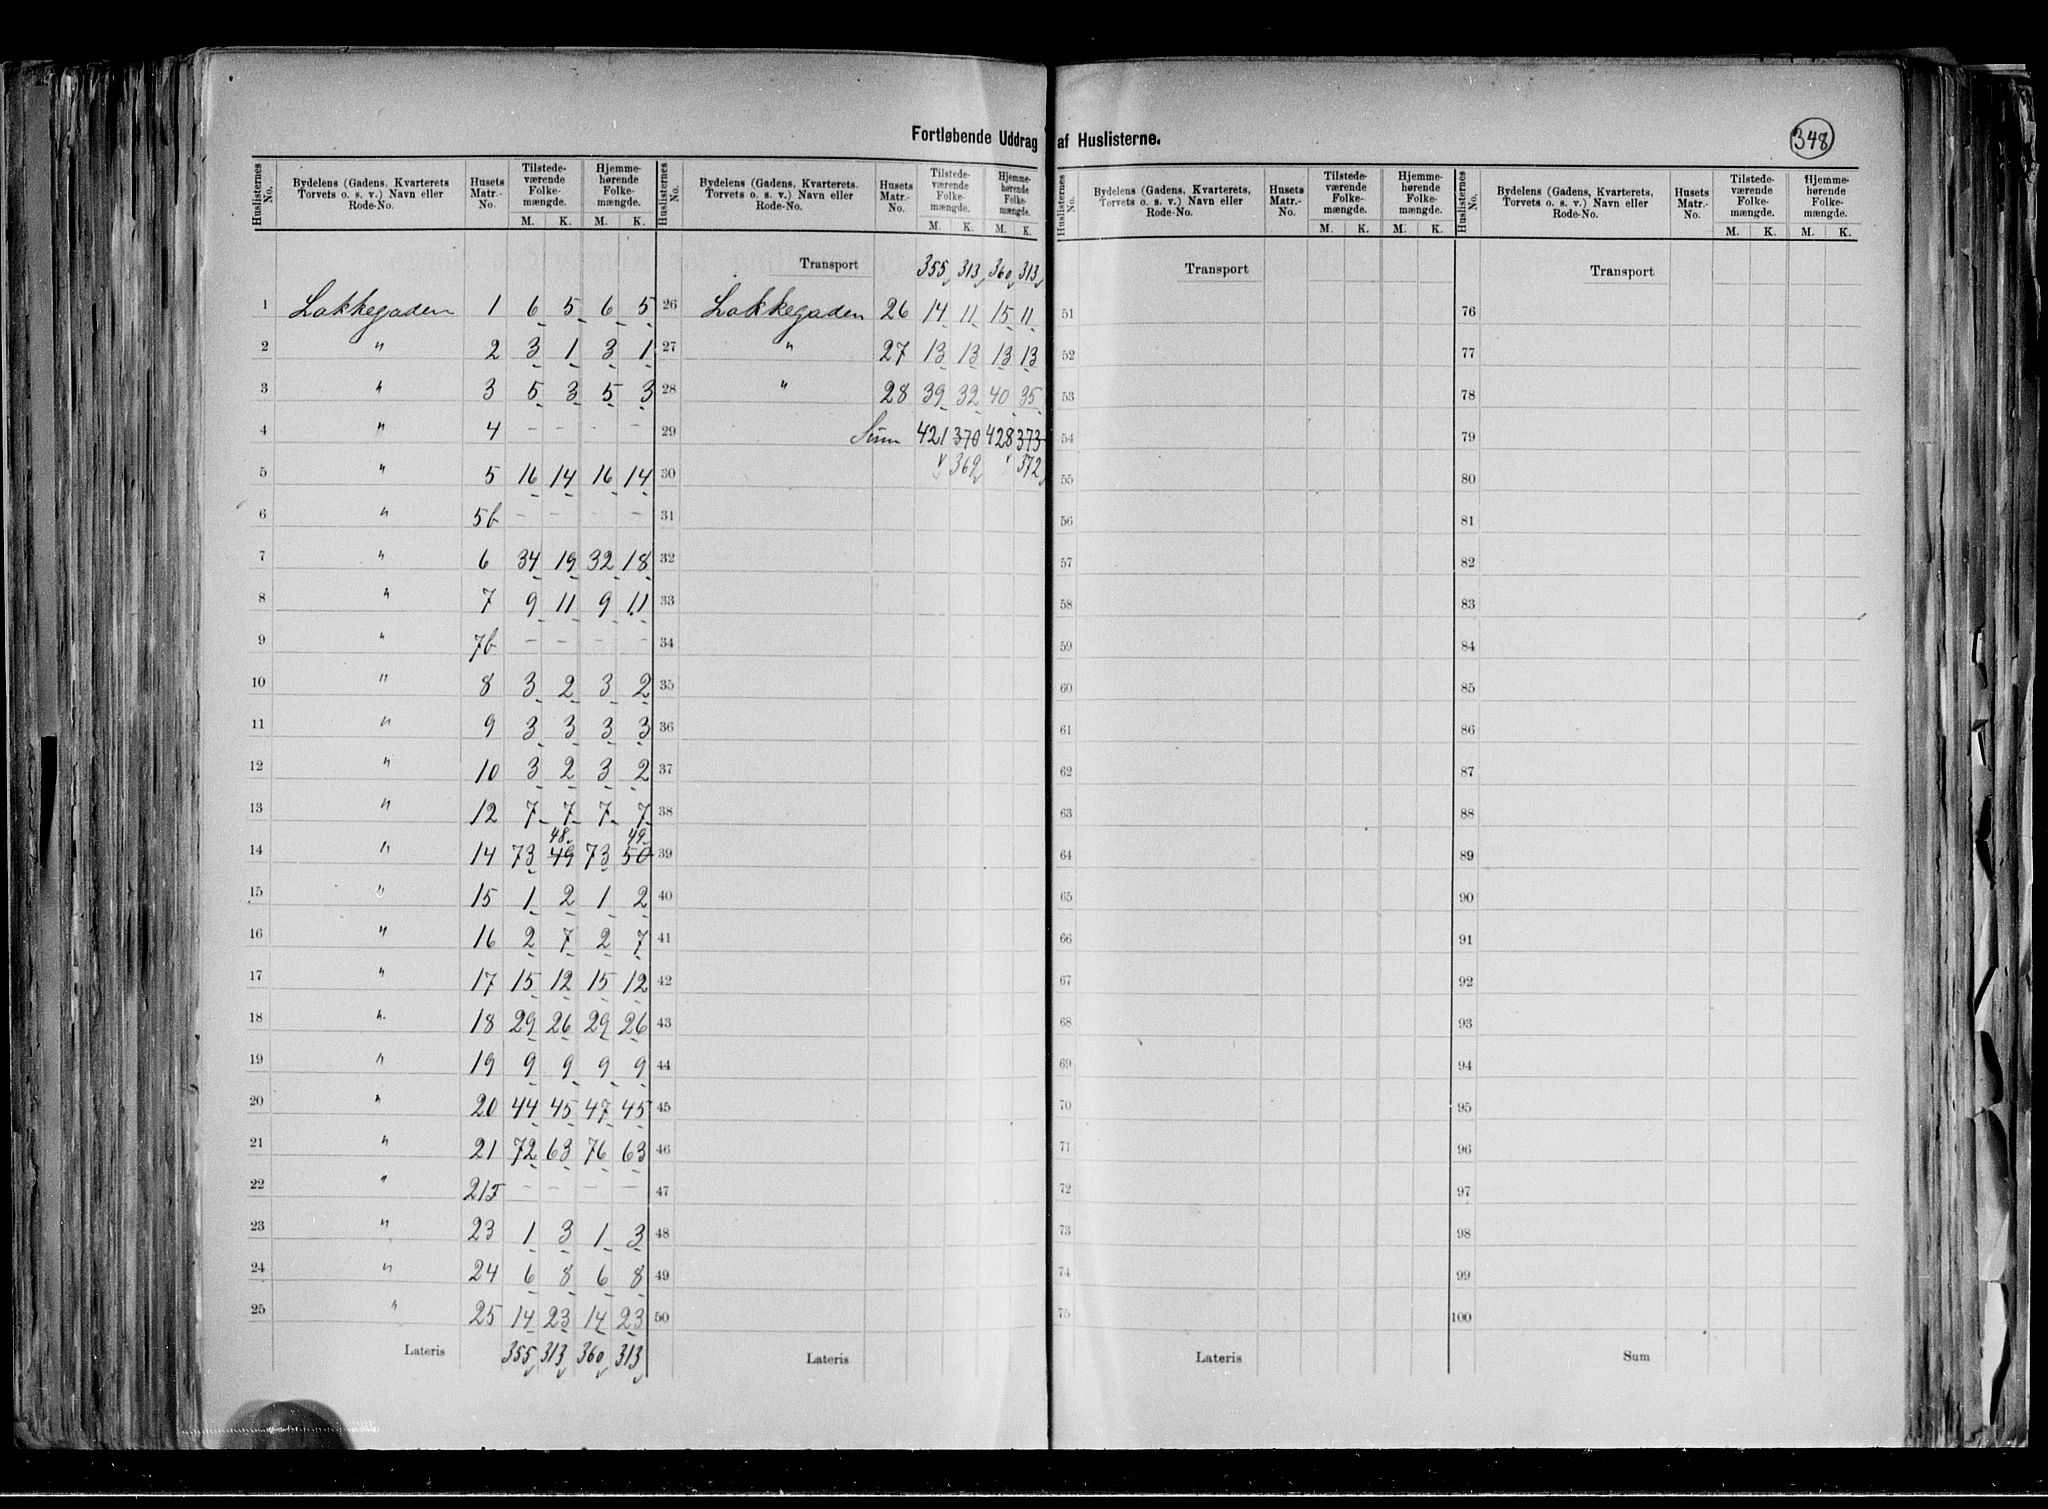 Fortløbende Uddrag af Huslisterne.
348
Huslisternes No. | Bydelens (Gadens, Kvarterets Torvets o. s. v.) Navn eller Rode-No. | Husets Matr.-No. | Tilstede-værende Folke-mængde. M. K. | Hjemme-hørende Folke-mængde. M. K.
1 Lakkegaden 1 6 5 6 5
2 " 2 3 1 3 1
3 " 3 5 3 5 3
4 " 4 – – – –
5 " 5 16 14 16 14
6 " 5b – – – –
7 " 6 34 19 32 18
8 " 7 9 11 9 11
9 " 7b – – – –
10 " 8 3 2 3 2
11 " 9 3 3 3 3
12 " 10 3 2 3 2
13 " 12 7 7 7 7
48 49
14 " 14 73 49 73 50
15 " 15 1 2 1 2
16 " 16 2 7 2 7
17 " 17 15 12 15 12
18 " 18 29 26 29 26
19 " 19 9 9 9 9
20 " 20 44 45 47 45
21 " 21 72 63 76 63
22 " – – – –
23 " 23 1 3 1 3
24 " 24 6 8 6 8
25 " 25 14 23 14 23
Lateris 355 313 360 313
Huslisternes No. | Bydelens (Gadens, Kvarterets. Torvets o. s. v.) Navn eller Rode-No. | Husets Matr.-No. | Tilstede-værende Folke-mængde. M. K. | Hjemme-hørende Folke-mængde. M. K.
Transport 355 313 360 313
26 Lakkegaden 26 14 11 15 11
27 " 27 13 13 13 13
28 " 28 39 32 40 35
29 Sum 421 370 428 373
30 369 372
31
32
33
34
35
36
37
38
39
40
41
42
43
44
45
46
47
48
49
50
Lateris
Huslisternes No. | Bydelens (Gadens, Kvarterets, Torvets o. s. v.) Navn eller Rode-No. | Husets Matr.-No. | Tilstede-værende Folke-mængde. M. K. | Hjemme-hørende Folke-mængde. M. K.
Transport
51
52
53
54
55
56
57
58
59
60
61
62
63
64
65
66
67
68
69
70
71
72
73
74
75
Lateris
Huslisternes No. | Bydelens (Gadens, Kvarterets, Torvets o. s. v.) Navn eller Rode-No. | Husets Matr.-No. | Tilstede-værende Folke-mængde. M. K. | Hjemme-hørende Folke-mængde. M. K.
Transport
76
77
78
79
80
81
82
83
84
85
86
87
88
89
90
91
92
93
94
95
96
97
98
99
100
Sum